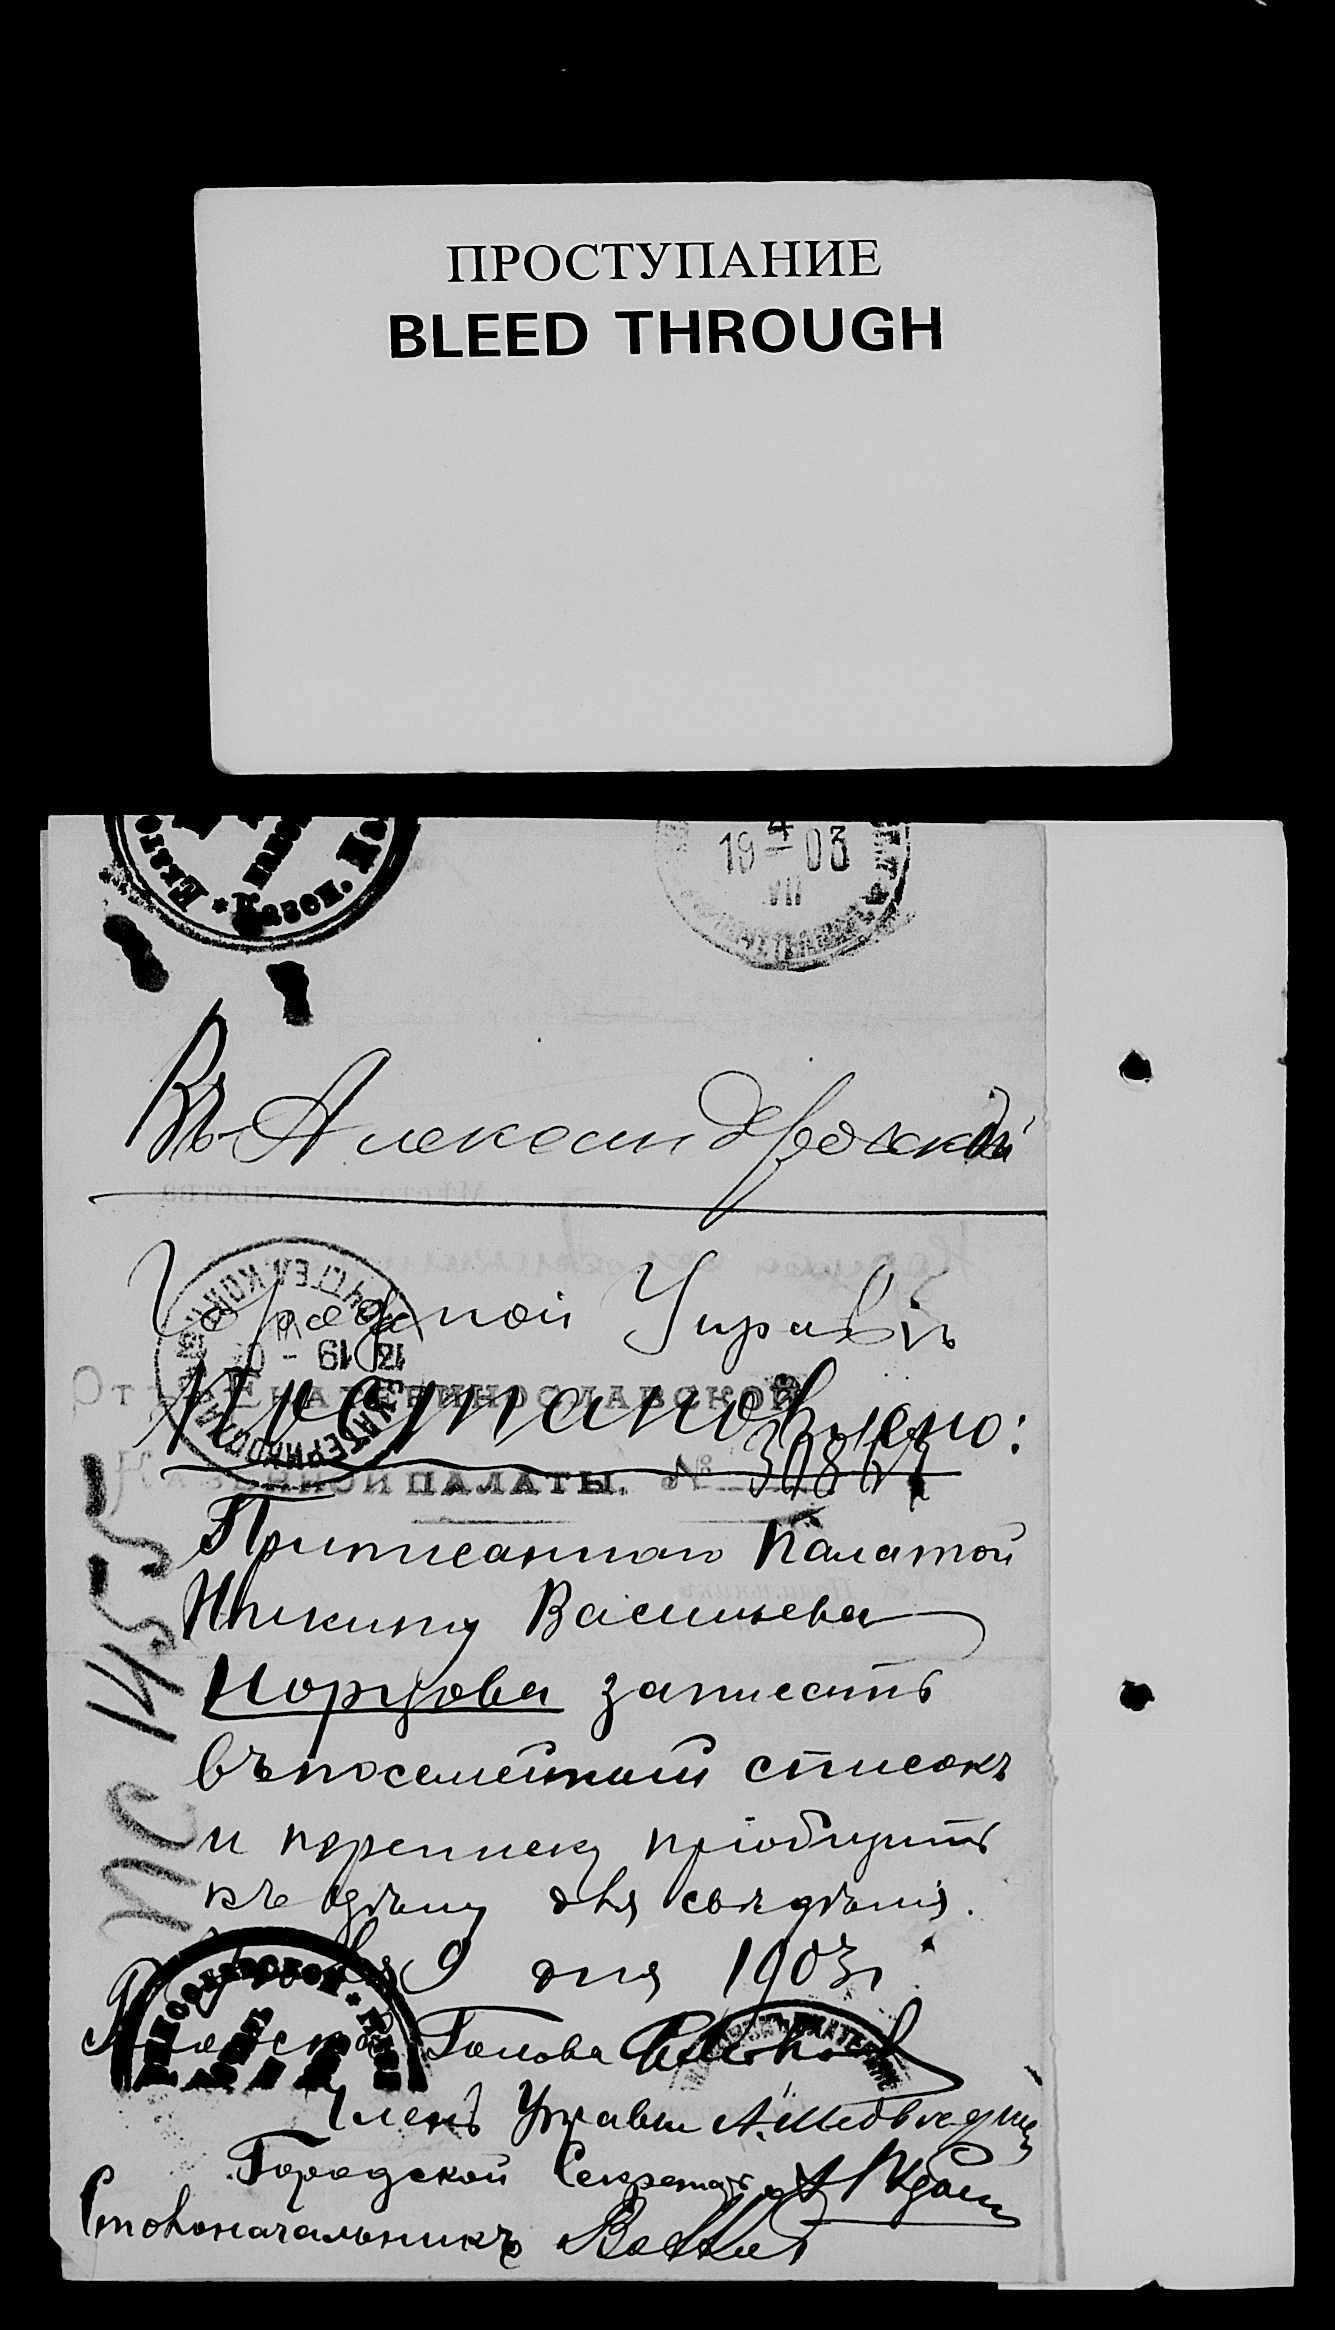 ПРОСТУПАНИЕ
BLEED THROUGH
19 4 03
VII
Въ Александровской
Городской Управѣ
Отъ ЕКАТЕРИНОСЛАВСКОЙ
Постановлено:
КАЗЕННОЙ ПАЛАТЫ. №
Приписаннаго Палатой
Никиту Васильева
записать
въ посемейный списокъ
и переписку пріобщить
къ дѣлу для свѣдѣнія.
9 дня 1903 г.
Голова
Членъ Управы А. Медведев
Городской Секретарь
Столоначальникъ
ПС 1455